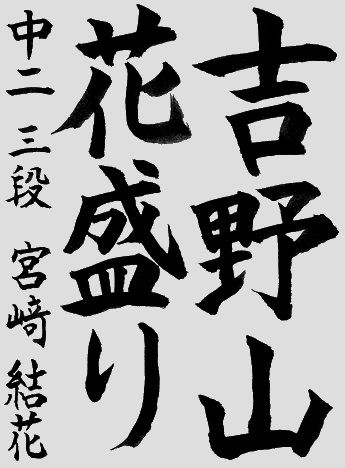 吉野山
花盛り
中二 三段 宮﨑 結花